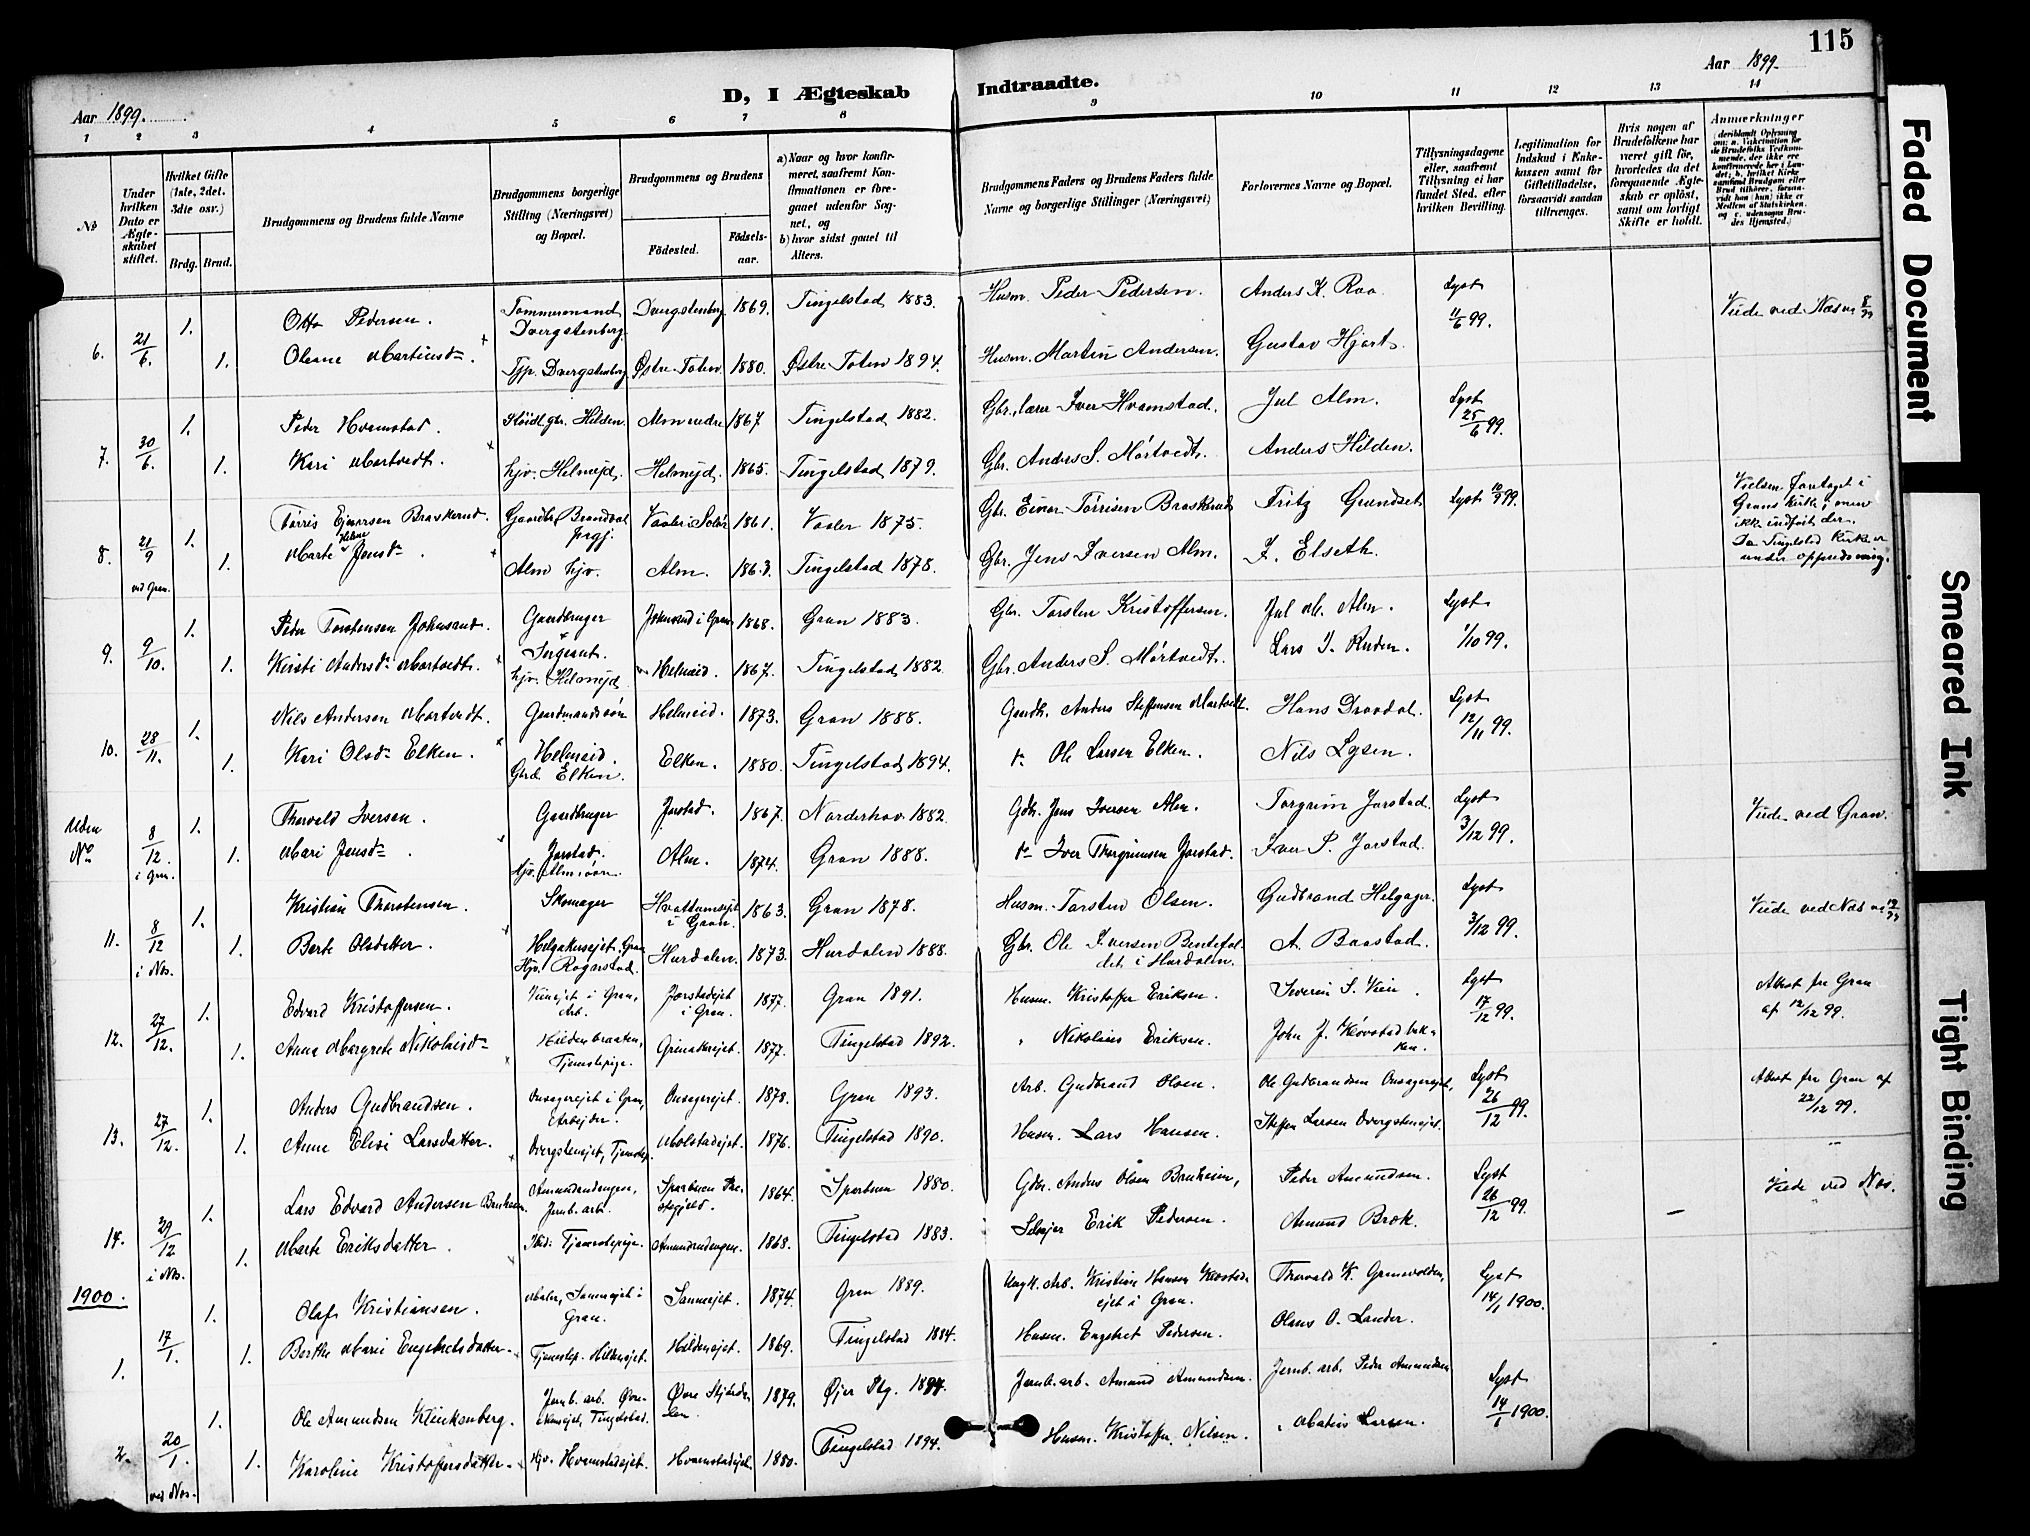 115
Aar 1899.
D, I Ægteskab Indtraadte.
Aar 1899.
1 2 3 4 5 6 7 8 9 10 11 12 13 14
No
Under hvilken Dato er Ægteskabet stiftet.
Hvilket Gifte (1ste, 2det, 3dte osv.)
Brdg. Brud.
Brudgommens og Brudens fulde Navne
Brudgommens borgerlige Stilling (Næringsvei) og Bopæl.
Brudgommens og Brudens
Födested.
Födselsaar.
a) Naar og hvor konfirmeret, saafremt Konfirmationen er foregaaet udenfor Sognet, og
b) hvor sidst gaaet til Alters.
Brudgommens Faders og Brudens Faders fulde Navne og borgerlige Stillinger (Næringsvei)
Forlovernes Navne og Bopæl.
Tillysningsdagene eller, saafremt Tillysning ei har fundet Sted, efter hvilken Bevilling.
Legitimation for Indskud i Enkekassen samt for Giftetilladelse, forsaavidt saadan tiltrænges.
Hvis nogen af Brudefolkene har været gift för, hvorledes da det foregaaende Ægteskab er oplöst, samt om lovligt Skifte er holdt.
Anmærkninger
6. 21/6. 1. Otto Pedersen. Tømmermand Dvergstenberg. Dvergstenberg 1869. Tingelstad 1883. Husm. Peder Pedersen. Anders K. Raa. Lyst 11/6 99. Viede ved Næs
1. Oleane Martinsd. Tjp. Dvergstenberg Østre Toten 1880. Østre Toten 1894. Husm. Martin Andersen. Gustav Hjort.
7. 30/6. 1. Peder Hvamstad. gbr. Hilden. Alm nedre 1867 Tingelstad 1882. Gbr., lærer Iver Hvamstad. Jul Alm. Lyst 25/6 99.
1. Kari Martvedt. hjv. Helmejd. Helmejd. 1865. Tingelstad 1879. Gbr. Anders S. Mörtvedt. Anders Hilden.
8. 21/9 ved Gran. 1. Tørris Ejnersen Braskerud. Gaardbr. Brandval prgj. Vaaler i Solör 1861. Vaaler 1875. Gbr. Einer Tørrisen Braskerud Fritz Grundset Lyst 10/9 99. Vielsen foretaget i Grans kirke, men ikke indført der. Da Tingelstad kirke er under oppudsning.
1. Marte Helene Jensd. Alm hjv. Alm. 1863. Tingelstad 1878. Gbr. Jens Iversen Alm. I. Elseth.
9. 9/10. 1. Peder Torstensen Johnsrud. Gaardbruger + Sergeant. Johnsrud i Gran 1868. Gran 1883. Gbr. Torsten Kristoffersen. Jul M. Alm. Lyst 1/10 99.
1. Kirsti Andersd. Martvedt. hjv. Helmejd Helmeid. 1867. Tingelstad 1882. Gbr. Anders S. Mörtvedt. Lars I. Ruden.
10. 28/11. 1. Nils Andersen Martvedt. Gaardmandssøn Helmeid. Helmeid. 1873. Gran 1888. Gaardb. Anders Steffensen Martvedt. Hans Dravdal. Lyst 12/11 99.
1. Kari Olsd. Elken. Gbrd. Elken. Elken. 1880. Tingelstad 1894. Ole Larsen Elken. Nils Lysen.
Uden No 8/12. i Gran. 1. Thorvald Iversen. Gaardbruger Jorstad. Jorstad. 1867. Norderhov 1882. Gdbr. Jens Iversen Alm. Torgrim Jorstad. Lyst 3/12 99. Viede ved Gran.
1. Mari Jensd. hjv. Alm Alm. 1874. Gran 1888. Iver Thorgrimsen Jorstad. Iver P. Jorstad.
11. 8/12 i Næs. 1. Kristian Thorstensen. Skomager Helgakereiet, Gran Hvattumeiet i Gran. 1863. Gran 1878. Husm. Torsten Olsen. Gudbrand Helgager. Lyst 3/12 99. Viede ved Næs
1. Berte Olsdatter. Hjv. Rognstad. Hurdalen. 1873. Hurdalen 1888. Gbr. Ole Iversen i Hurdalen. A. Baastad.
12. 27/12. 1. Edvard Kristoffersen. Vieneiet i Gran, Arb. Jorstadeiet i Gran. 1877. Gran 1891. Husm. Kristoffer Eriksen. Severin S. Vien. Lyst 17/12 99. Attest fra Gran af 12/12 99.
1. Anne Margrete Nikolaisd. Hildenbraaten, Tjenestepige. Grinakereiet. 1877. Tingelstad 1892. Nikolaus Eriksen. John J. Kløvstadbakken.
13. 27/12. 1. Anders Gudbrandsen. Onsagereiet i Gran, Arbejder. Onsagereiet. 1873. Gran 1893. Arb. Gudbrand Olsen. Ole Gudbrandsen Onsagereiet, Lyst 26/12 99. Attest fra Gran af 22/12 99.
1. Anne Elise Larsdatter. Dvergsteneiet, Tjenestep. Molstadeiet. 1876. Tingelstad 1890. Husm. Lars Hansen. Steffen Larsen Dvergsteneiet.
14. 29/12 i Næs. 1. Lars Edvard Andersen Bruheim. Amundrudengen, Jernb. arb. Sparbuen Præstegjeld. 1864. Sparbuen 1880. Gdbr. Anders Olsen Bruheim, Peder Amundsen. Lyst 26/12 99. Viede ved Næs.
1. Marte Eriksdatter. Ibid. Tjenestepige. Amundrudengen. 1868. Tingelstad 1883. Selvejer Erik Pedersen. Amund Brok.
1900.
1. 17/1. 1. Olaf Kristiansen. Maler, Sanneeiet i Gran. Sanneeiet. 1874. Gran 1889. Ungk. Arb. Kristian Hansen Kløvstadeiet i Gran. Thorvald K. Grinvolden, Lyst 14/1 1900.
1. Berthe Marie Engebretsdatter. Tjenestep. Hildeneiet. Hildeneiet. 1869. Tingelstad 1884. Husm. Engebret Pedersen. Olaus O. Lander.
2. 20/1. ved Næs. 1. Ole Amundsen Klinkenberg. Jernb. arb. Tingelstad. Øvre 1879. Øjer Plg. 1894. Jernb. arb. Amund Amundsen. Jernb. arb. Peder Amundsen Lyst 14/1 1900.
1. Karoline Kristoffersdatter. Hjv. Hvamstadeiet. Hvamstadeiet. 1880. Tingelstad 1894. Husm. Kristoffer Nilsen. Matias Larsen.
Faded Document
Smeared Ink
Tight Binding